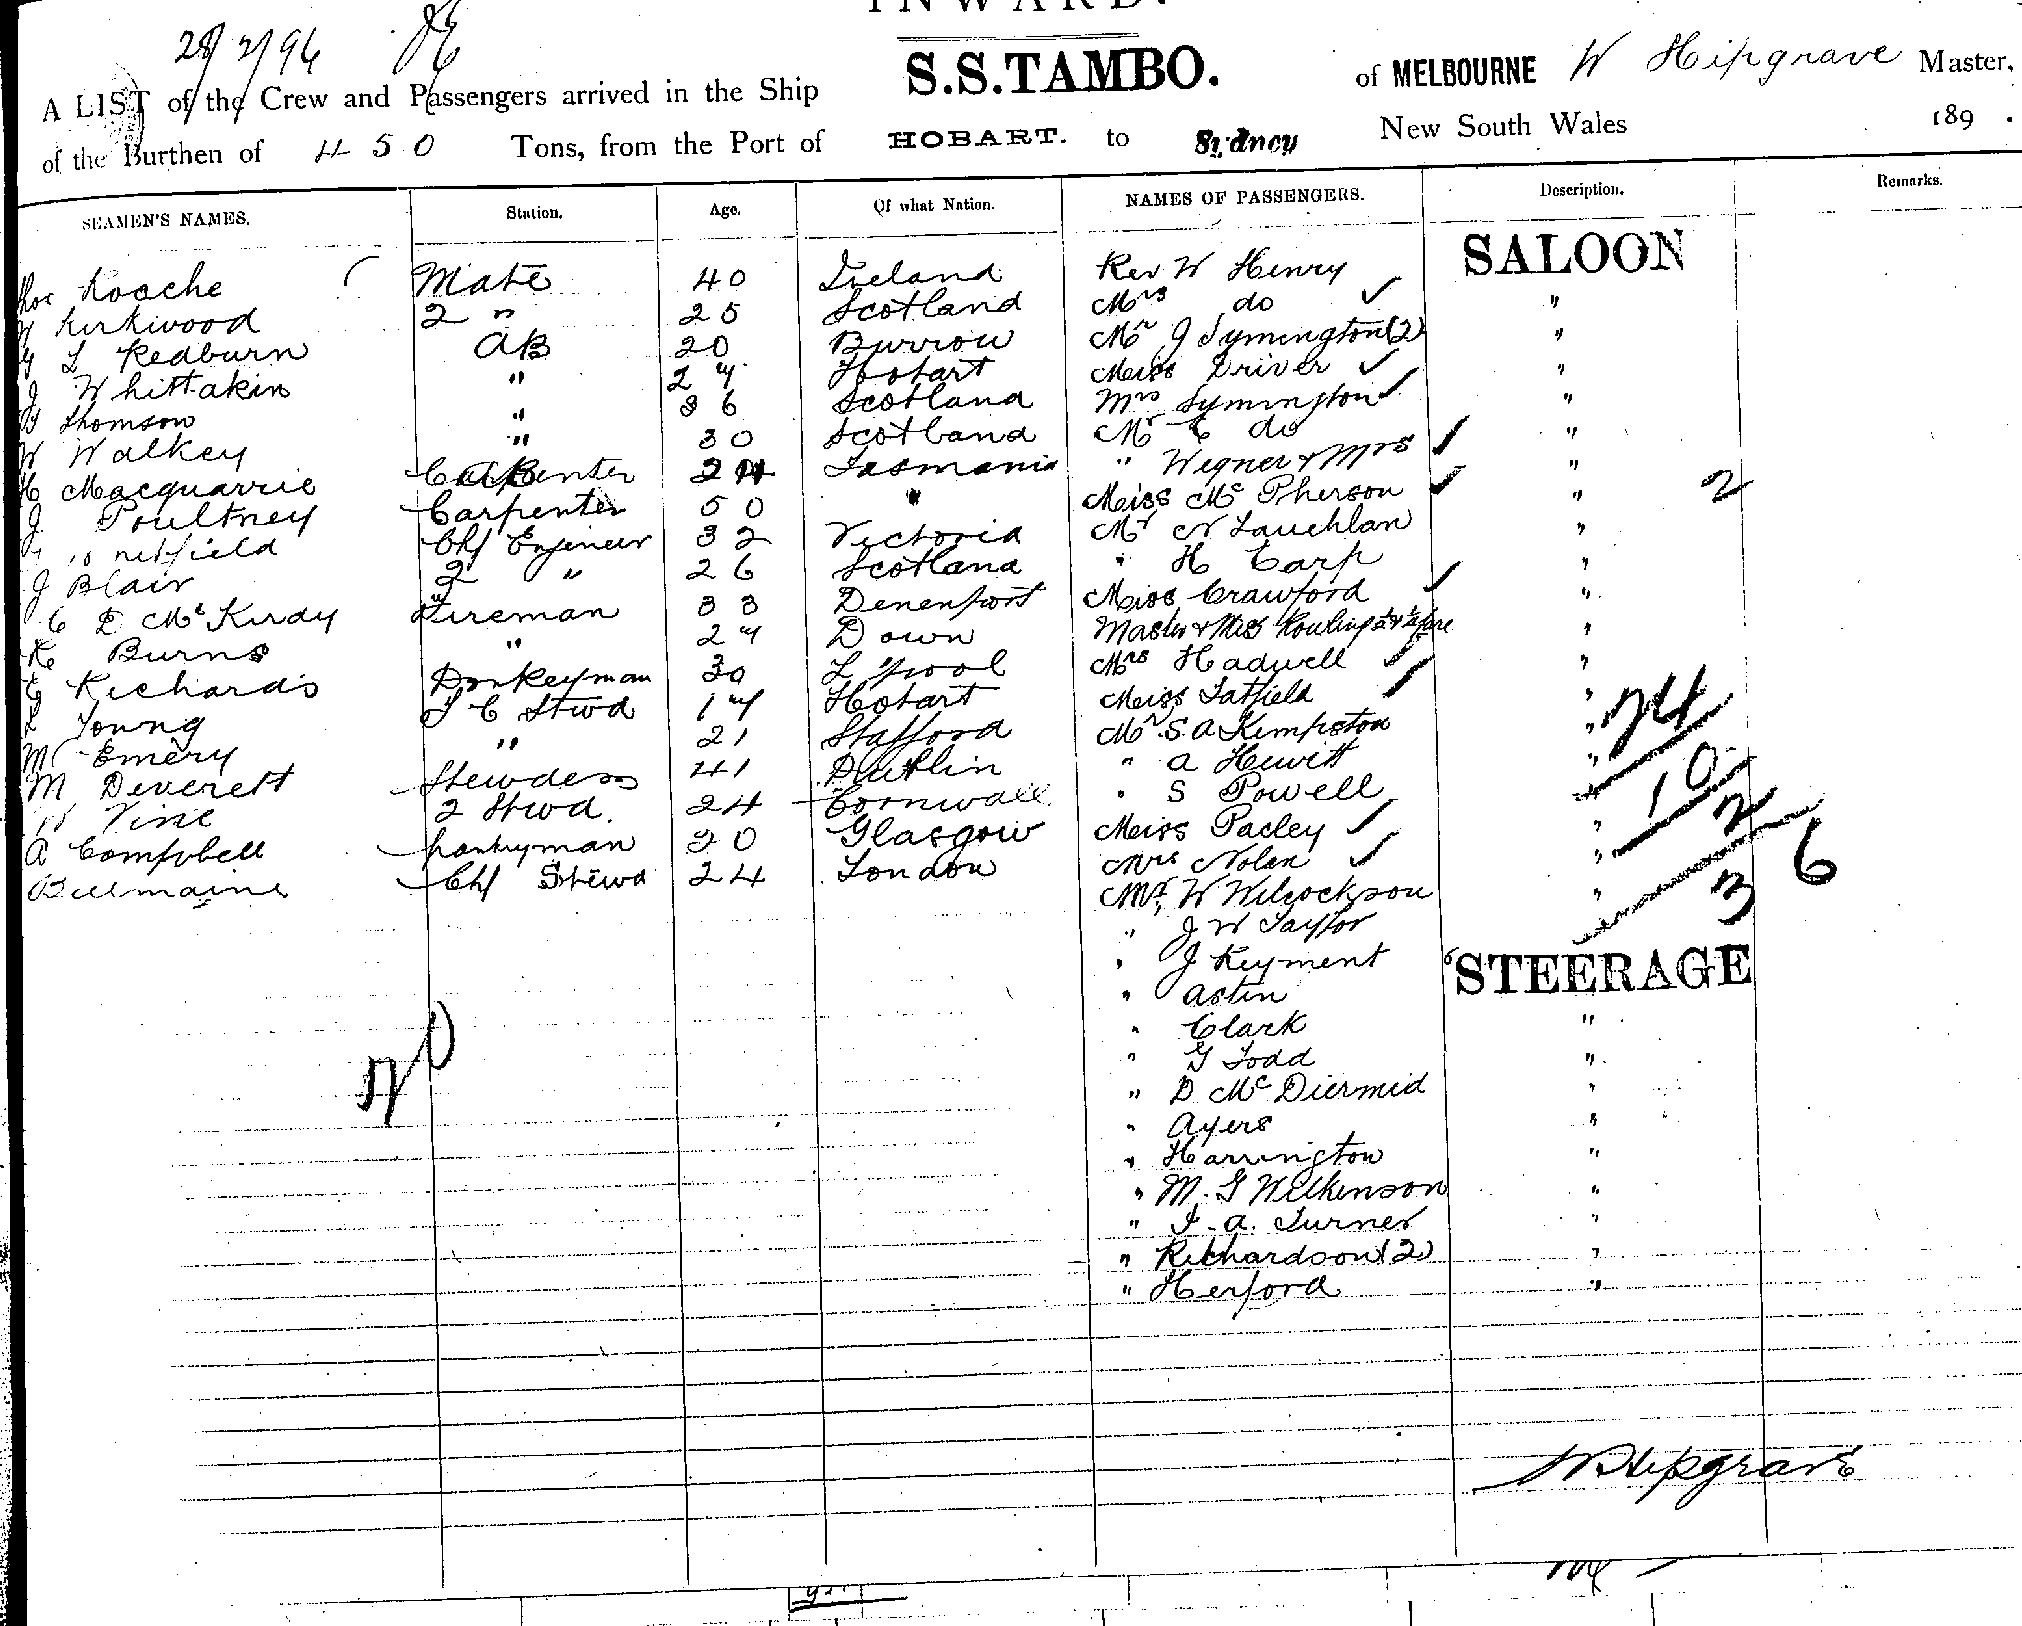 INWARD.
28/2/96
A LIST of the Crew and Passengers arrived in the Ship S.S. TAMBO. of MELBOURNE W Hipgrave Master,
of the Burthen of 450 Tons, from the Port of HOBART. to Sydney New South Wales 189 .
SEAMEN'S NAMES. Station. Age. Of what Nation. NAMES OF PASSENGERS. Description. Remarks.
Roache Mate 40 Ireland Rev W Henry SALOON
Kirkwood 2 " 25 Scotland Mrs do ✓ "
L Redburn AB 20 Burrow Mr J Symington (2) "
J Whittakin " 27 Hobart Miss Driver ✓ "
Thomson " 36 Scotland Mrs Symington ✓ "
W Walkey " 30 Scotland Mr C do "
H Macquarrie AB 24 Tasmania " Wegner & Mrs ✓ "
J Poultney Carpenter 50 " Miss McPherson ✓ " 2
Chf Engineer 32 Victoria Mr N Lauchlan "
J Blair 2 " 26 Scotland " H Carp "
C D McKirdy Fireman 33 Devenport Miss Crawford ✓ "
R Burns " 27 Down Master & Miss "
Richards Donkeyman 30 L'pool Mrs Hadwell ✓ "
L Young F C Stwd 17 Hobart Miss Tatfield ✓ "
M Emery " 21 Stafford Mr S. A Kempston " 24
M Deverett Stewdess 41 Dublin " A Hewitt "
W Vine 2 Stwd. 24 Cornwall " S Powell " 10
A Campbell pantryman 20 Glasgow Miss Pacley ✓ " 2
Bellmaine Chf Stewd 24 London Mrs Nolan ✓ "
Mr. W Wilcockson " 36
" J W Taylor
" J Keyment STEERAGE
" Astin
" Clark "
" G Todd "
" D McDiermid "
" Ayers "
" Harrington "
" M. G Wilkinson "
" J. A. Turner "
" Richardson (2) "
" Herford "
W Hipgrave